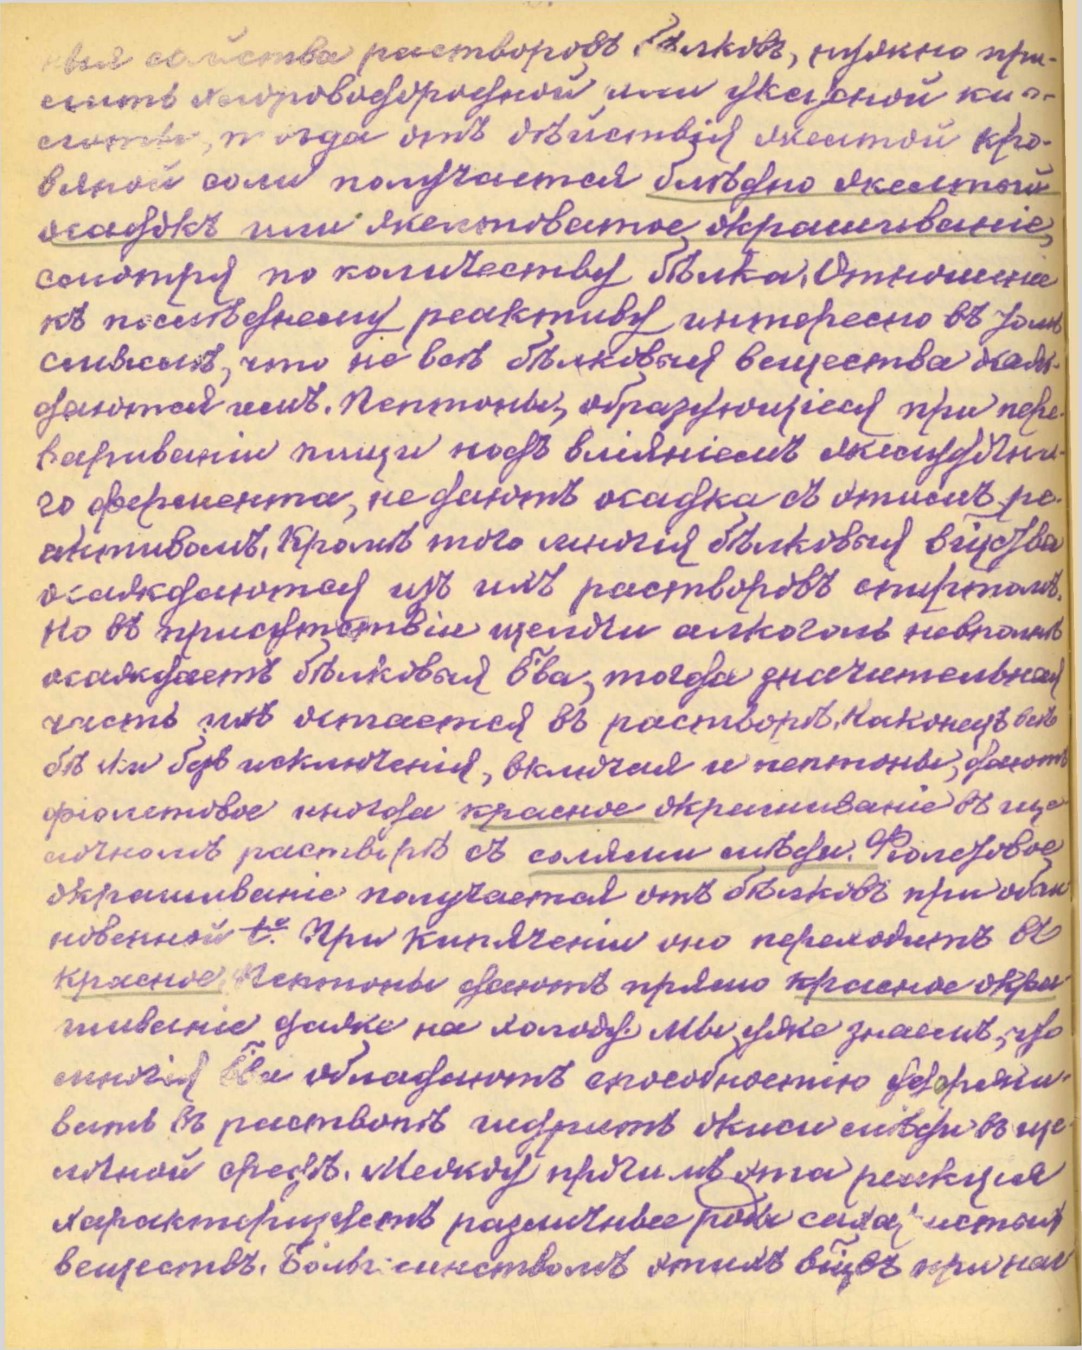 ныя свойства растворовъ бѣлковъ, нужно при-
лить хлороводородной или уксусной ки-
слоты, тогда отъ дѣйствія желтой кро-
вяной соли получается блѣдно желтый
осадокъ или желтоватое окрашиваніе,
смотря по количеству бѣлка. Отношеніе
къ послѣднему реактиву интересно въ томъ
смыслѣ, что не всѣ бѣлковыя вещества осаж-
даются имъ. Пептоны, образующіеся при пере-
вариваніи пищи подъ вліяніемъ желудочна-
го фермента, не даютъ осадка съ этимъ ре-
активомъ. Кромѣ того многія бѣлковыя вещства
осаждаются изъ ихъ растворовъ спиртомъ.
Но въ присутствіи щелочи алкоголь невполнѣ
осаждаетъ бѣлковыя в̃ва, тогда значительная
часть ихъ остается въ растворѣ. Наконецъ всѣ
бѣлки безъ исключенія, включая и пептоны, даютъ
фіолетовое иногда красное окрашиваніе въ ще
лочномъ растворѣ съ солями мѣди. Фіолетовое
окрашиваніе получается отъ бѣлковъ при обык
новенной t°. При кипяченіи оно переходитъ въ
красное. Пептоны даютъ прямо красное окра
шиваніе даже на холоду. Мы уже знаемъ, что
многія в̃ва обладаютъ способностію удержи-
вать въ растворѣ гидратъ окиси мѣди въ ще-
лочной средѣ. Между прочимъ эта реакция
характеризуетъ различные роды сахаристыхъ
веществъ. Большинствомъ этихъ в̃щвъ при наг